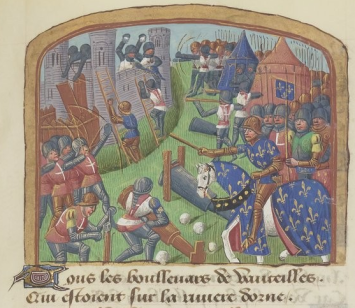 Tous les boullenars de vauxelles
Qui estoient sur la riviere donne